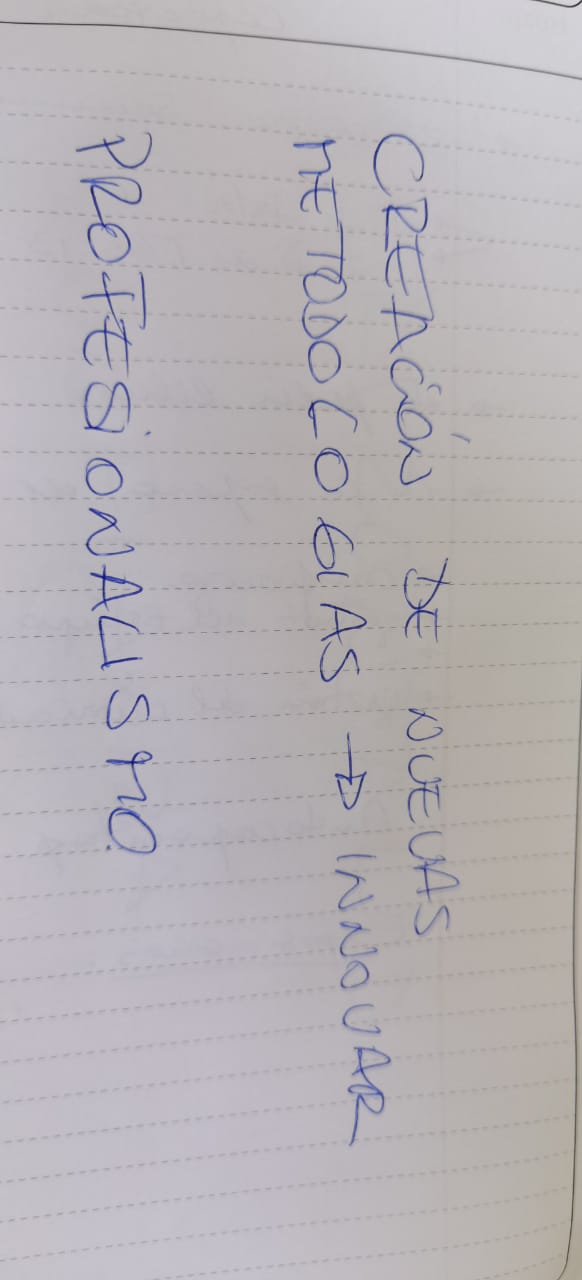 CREACIÓN DE NUEVAS
METODOLOGIAS → INNOVAR
PROFESIONALISMO